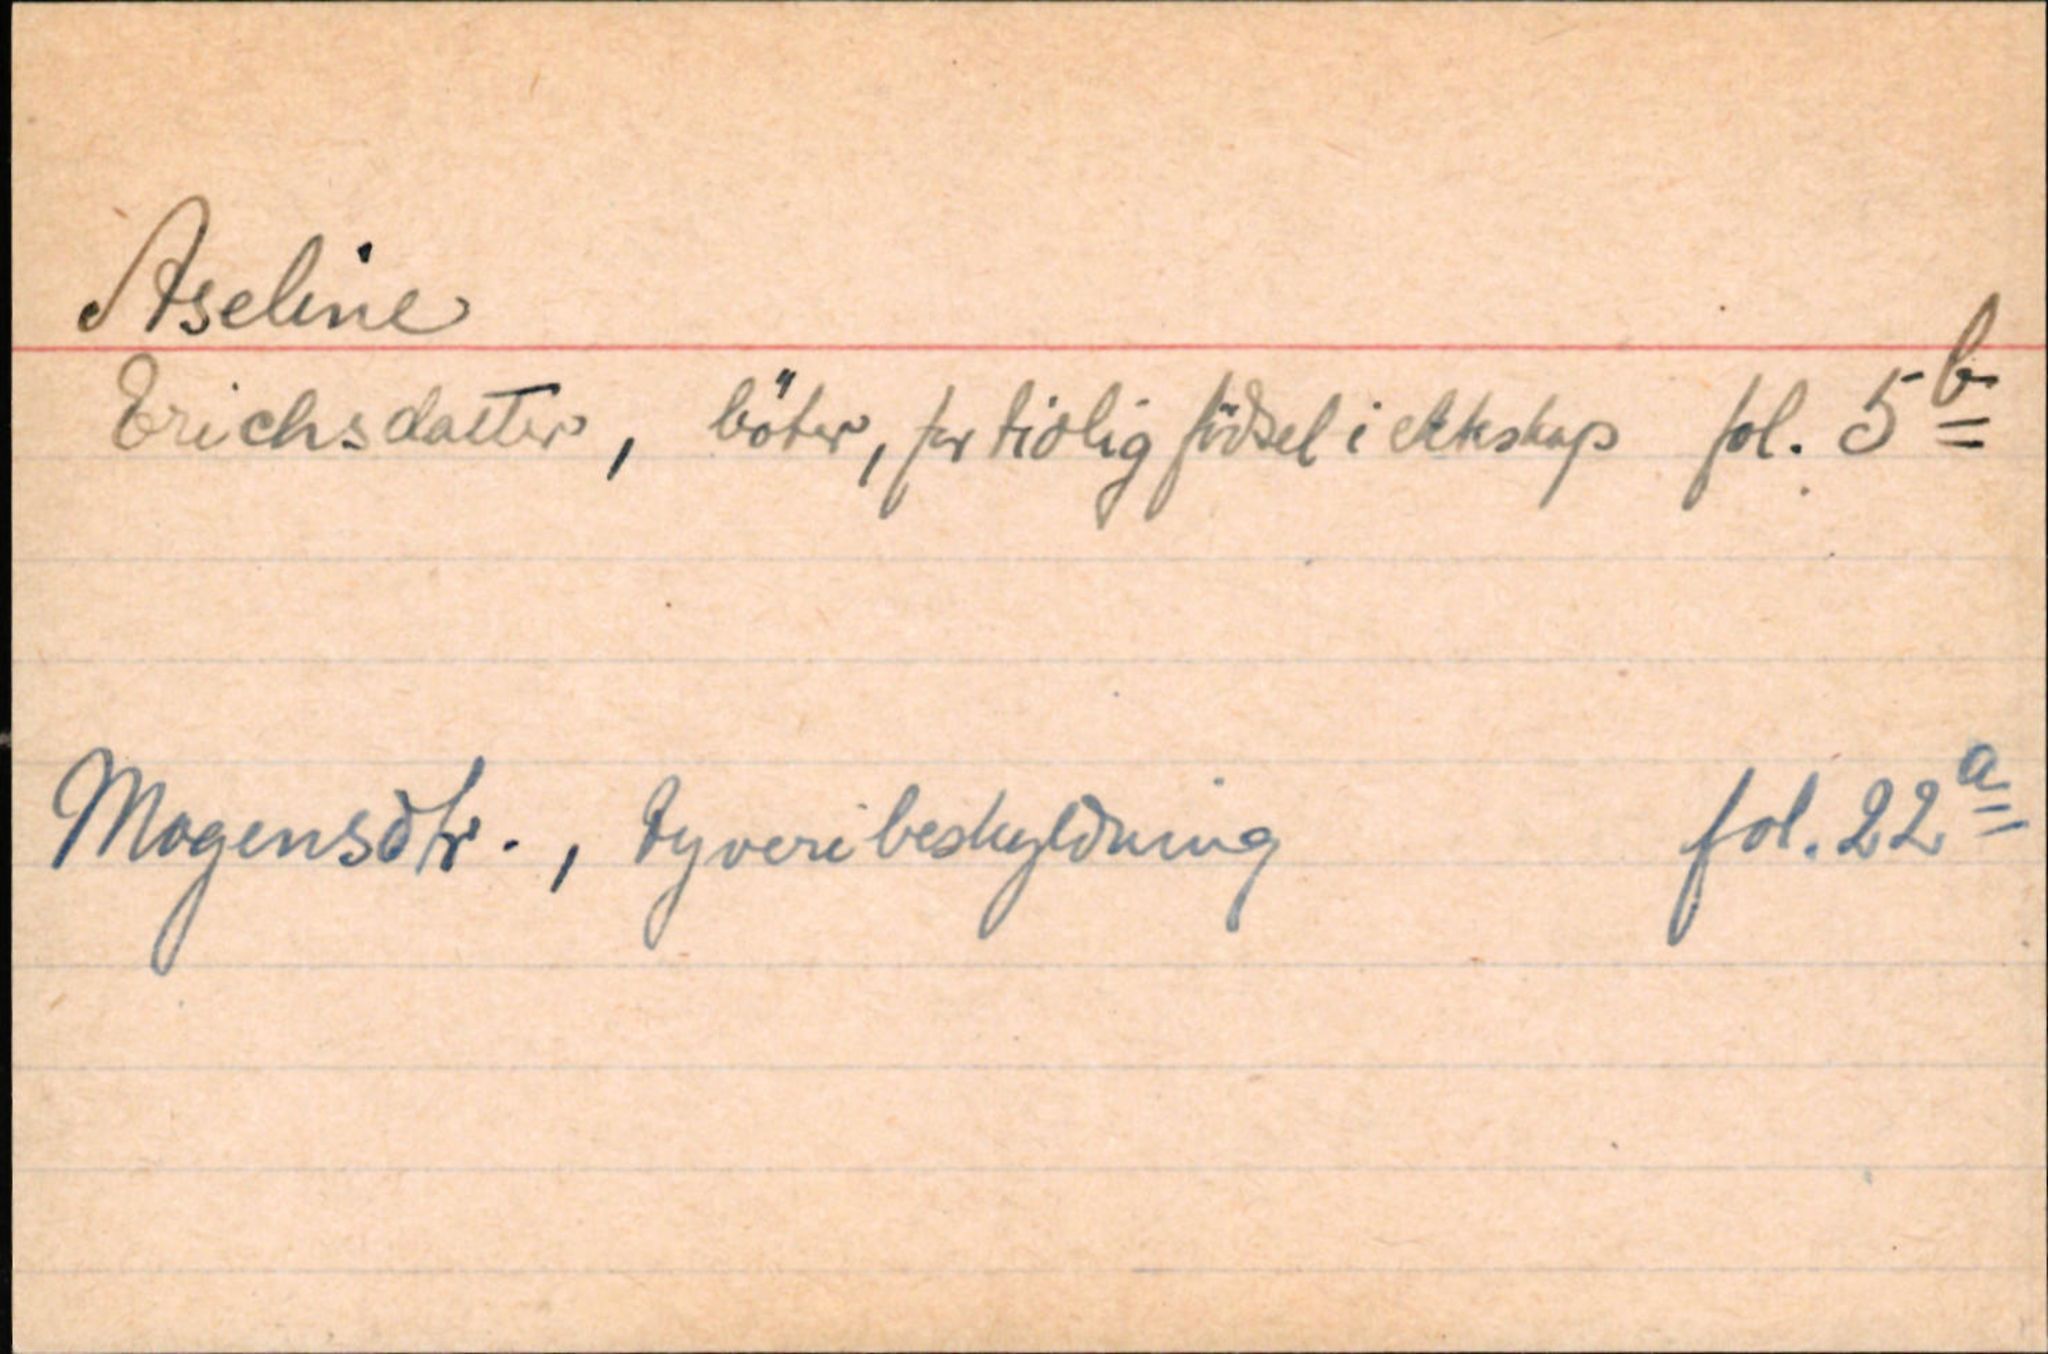 Aseline
Erichsdatter, böter, for tidlig födsel i ekteskap fol. 5b
Mogensdtr., tyveribeskyldning fol. 22a